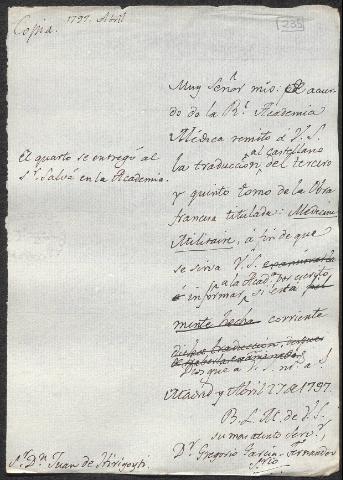 Copia.
1797. Abril
235
Muy Señor mio: El acuer
do de la Rl. Academia
Médica remito á V.S.
al castellano
la traduccion del tercero
y quinto tomo de la Obra
francesa titulada: Medecine
Militaire, á fin de que
se sirva V.S.
informar
si está
mente hecha corriente
dicha traduccion, despues
de haberla examinado.
Dios gue. á V.S. ms. as.
Madrid y Abril 27 de 1797.
B. L. M. de V.S.
su mas atento servr.
Dr. Gregorio Garcia Fernandez
Srio
El quarto se entregó al
Sr. Salvá en la Academia.
Sr. Dn. Juan de